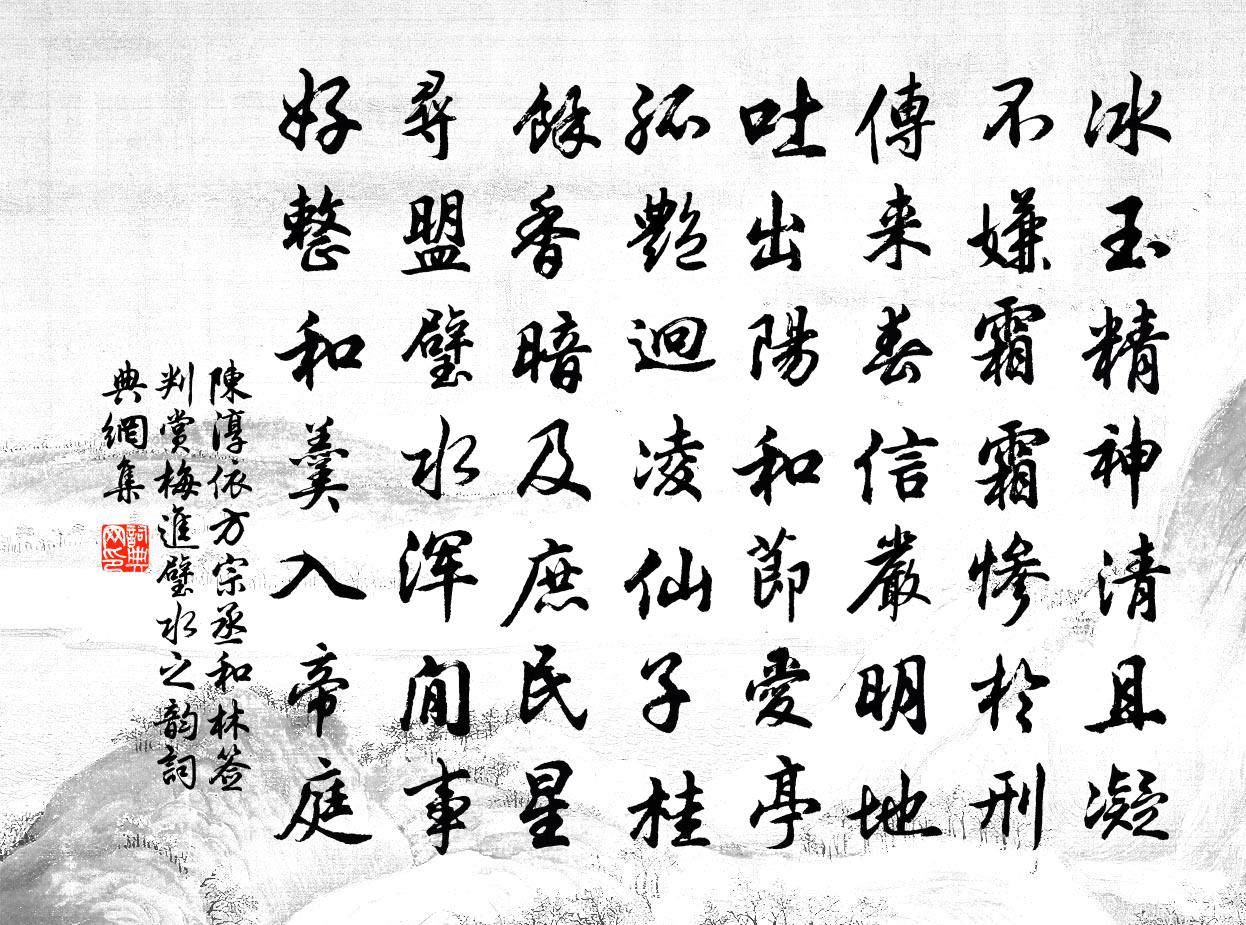 冰玉精神清且凝
不嫌霜霜惨於刑
傳来春信嚴明地
吐出陽和節愛亭
孤艷迥凌仙子桂
餘香暗及庶民星
尋盟璧水渾閒事
好整和羹入帝庭
陳淳依方宗丞和林簽
判賞梅進璧水之韵詞
典網集
詞典网印